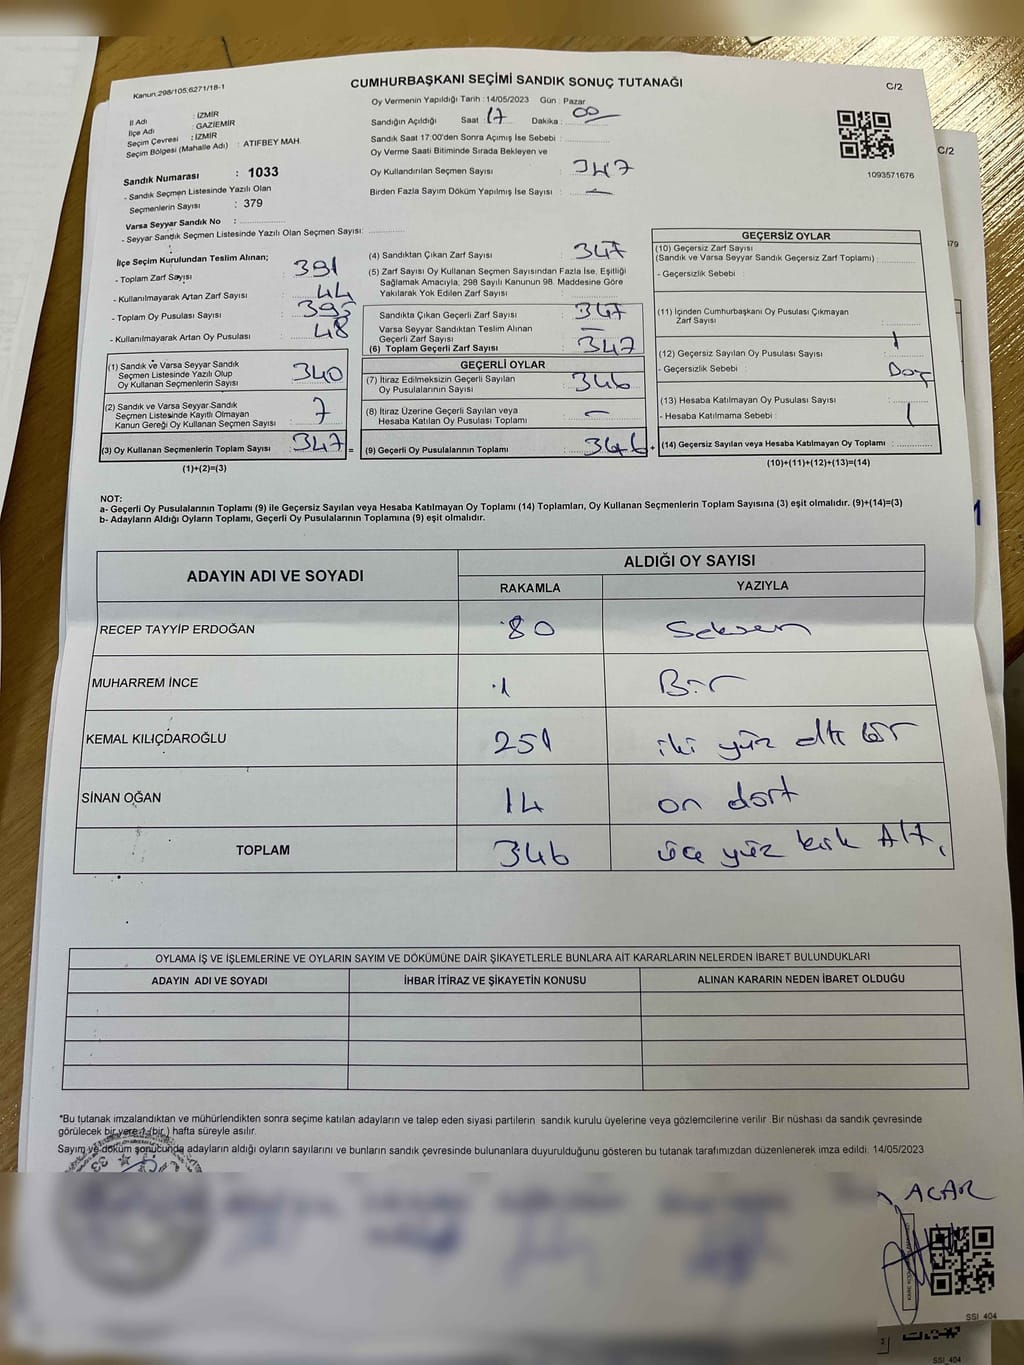 Kanun,298/105;6271/18-1
CUMHURBAŞKANI SEÇİMİ SANDIK SONUÇ TUTANAĞI
C/2
İl Adı : İZMİR
İlçe Adı : GAZİEMİR
Seçim Çevresi : İZMİR
Seçim Bölgesi (Mahalle Adı) : ATIFBEY MAH.
Sandık Numarası : 1033
- Sandık Seçmen Listesinde Yazılı Olan
Seçmenlerin Sayısı : 379
Varsa Seyyar Sandık No :
- Seyyar Sandık Seçmen Listesinde Yazılı Olan Seçmen Sayısı:
Oy Vermenin Yapıldığı Tarih : 14/05/2023 Gün : Pazar
Sandığın Açıldığı Saat : 17 Dakika : 00
Sandık Saat 17:00'den Sonra Açımış İse Sebebi :
Oy Verme Saati Bitiminde Sırada Bekleyen ve
Oy Kullandırılan Seçmen Sayısı : 347
Birden Fazla Sayım Döküm Yapılmış İse Sayısı : —
1093571676
C/2
379
İlçe Seçim Kurulundan Teslim Alınan;
- Toplam Zarf Sayısı : 391
- Kullanılmayarak Artan Zarf Sayısı : 44
- Toplam Oy Pusulası Sayısı :
- Kullanılmayarak Artan Oy Pusulası : 48
(1) Sandık ve Varsa Seyyar Sandık
Seçmen Listesinde Yazılı Olup
Oy Kullanan Seçmenlerin Sayısı : 340
(2) Sandık ve Varsa Seyyar Sandık
Seçmen Listesinde Kayıtlı Olmayan
Kanun Gereği Oy Kullanan Seçmen Sayısı : 7
(3) Oy Kullanan Seçmenlerin Toplam Sayısı : 347 =
(1)+(2)=(3)
(4) Sandıktan Çıkan Zarf Sayısı : 347
(5) Zarf Sayısı Oy Kullanan Seçmen Sayısından Fazla İse, Eşitliği
Sağlamak Amacıyla; 298 Sayılı Kanunun 98. Maddesine Göre
Yakılarak Yok Edilen Zarf Sayısı :
Sandıkta Çıkan Geçerli Zarf Sayısı : 347
Varsa Seyyar Sandıktan Teslim Alınan
Geçerli Zarf Sayısı : —
(6) Toplam Geçerli Zarf Sayısı : 347
GEÇERLİ OYLAR
(7) İtiraz Edilmeksizin Geçerli Sayılan
Oy Pusulalarının Sayısı : 346
(8) İtiraz Üzerine Geçerli Sayılan veya
Hesaba Katılan Oy Pusulası Toplamı : —
(9) Geçerli Oy Pusulalarının Toplamı : 346 +
GEÇERSİZ OYLAR
(10) Geçersiz Zarf Sayısı
(Sandık ve Varsa Seyyar Sandık Geçersiz Zarf Toplamı) :
- Geçersizlik Sebebi :
(11) İçinden Cumhurbaşkanı Oy Pusulası Çıkmayan
Zarf Sayısı :
(12) Geçersiz Sayılan Oy Pusulası Sayısı : 1
- Geçersizlik Sebebi :
(13) Hesaba Katılmayan Oy Pusulası Sayısı :
- Hesaba Katılmama Sebebi : 1
(14) Geçersiz Sayılan veya Hesaba Katılmayan Oy Toplamı :
(10)+(11)+(12)+(13)=(14)
NOT:
a- Geçerli Oy Pusulalarının Toplamı (9) ile Geçersiz Sayılan veya Hesaba Katılmayan Oy Toplamı (14) Toplamları, Oy Kullanan Seçmenlerin Toplam Sayısına (3) eşit olmalıdır. (9)+(14)=(3)
b- Adayların Aldığı Oyların Toplamı, Geçerli Oy Pusulalarının Toplamına (9) eşit olmalıdır.
ADAYIN ADI VE SOYADI
ALDIĞI OY SAYISI
RAKAMLA YAZIYLA
RECEP TAYYİP ERDOĞAN 80 Seksen
MUHARREM İNCE 1 Bir
KEMAL KILIÇDAROĞLU 251 iki yüz elli bir
SİNAN OĞAN 14 on dört
TOPLAM 346 üç yüz kırk Altı
OYLAMA İŞ VE İŞLEMLERİNE VE OYLARIN SAYIM VE DÖKÜMÜNE DAİR ŞİKAYETLERLE BUNLARA AİT KARARLARIN NELERDEN İBARET BULUNDUKLARI
ADAYIN ADI VE SOYADI İHBAR İTİRAZ VE ŞİKAYETİN KONUSU ALINAN KARARIN NEDEN İBARET OLDUĞU
*Bu tutanak imzalandıktan ve mühürlendikten sonra seçime katılan adayların ve talep eden siyasi partilerin sandık kurulu üyelerine veya gözlemcilerine verilir. Bir nüshası da sandık çevresinde
görülecek bir yere 1 (bir ) hafta süreyle asılır.
Sayım ve döküm sonucunda adayların aldığı oyların sayılarını ve bunların sandık çevresinde bulunanlara duyurulduğunu gösteren bu tutanak tarafımızdan düzenlenerek imza edildi. 14/05/2023
33
ACAR
SSI_404
SSI_404